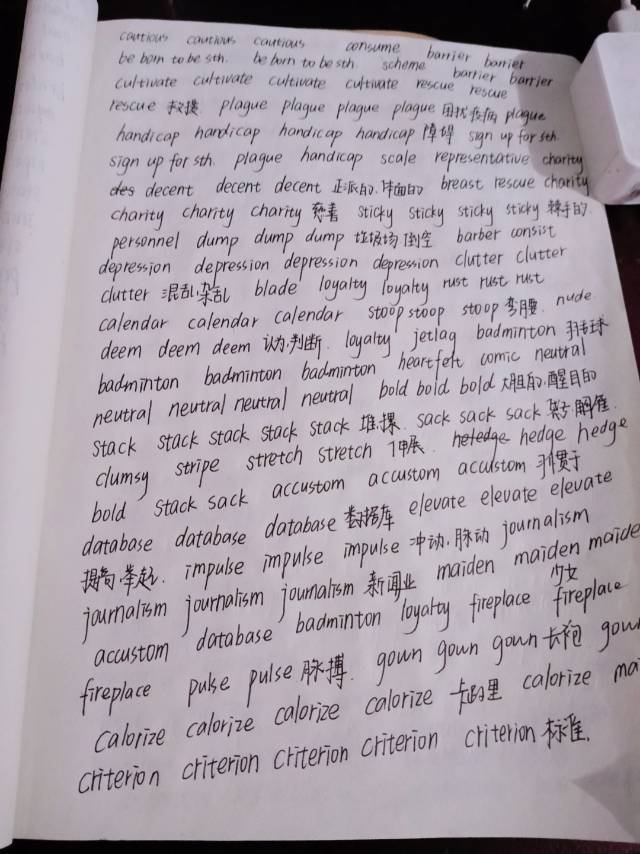 cautious cautious cautious consume barrier barrier
be born to be sth. be born to be sth. scheme barrier barrier
cultivate cultivate cultivate cultivate rescue rescue
rescue 救援 plague plague plague plague 困扰疾病 plague
handicap handicap handicap handicap 障碍 sign up for sth.
sign up for sth. plague handicap scale representative charity
decent decent decent 正派的.体面的 breast rescue charity
charity charity charity 慈善 sticky sticky sticky sticky 棘手的.
personnel dump dump dump 垃圾场 倒空 barber consist
depression depression depression depression clutter clutter
clutter 混乱.杂乱 blade loyalty loyalty rust rust rust
calendar calendar calendar stoop stoop stoop 弯腰. nude
deem deem deem 认为.判断. loyalty jetlag badminton 羽毛球
badminton badminton badminton heartfelt comic neutral
neutral neutral neutral neutral bold bold bold 大胆的.醒目的
stack stack stack stack stack 堆.摞. sack sack sack 袋子 解雇.
clumsy stripe stretch stretch 伸展. hedge hedge
bold stack sack accustom accustom acculstom 习惯于
database database database 数据库 elevate elevate elevate
提高.举起. impulse impulse impulse 冲动.脉动 journalism
journalism journalism journalism 新闻业 maiden maiden maide
少女
accustom database badminton loyalty fireplace fireplace
fireplace pulse pulse 脉搏. gown gown gown 长袍 gow
calorize calorize calorize calorize 卡路里 calorize ma
criterion criterion criterion criterion criterion 标准.